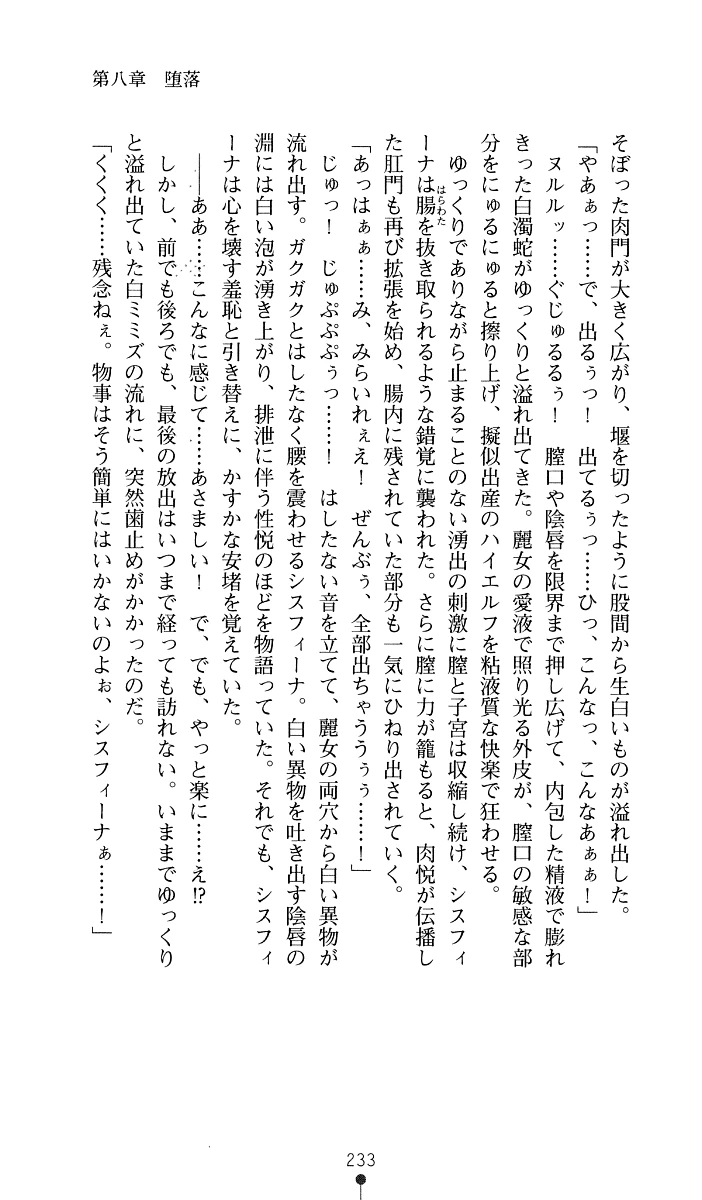 第八章　堕落
そぼった肉門が大きく広がり、堰を切ったように股間から生白いものが溢れ出した。
「やあぁっ……で、出るぅっ！　出てるぅっ……ひっ、こんなっ、こんなあぁぁ！」
　ヌルルッ……ぐじゅるるぅ！　膣口や陰唇を限界まで押し広げて、内包した精液で膨れ
きった白濁蛇がゆっくりと溢れ出てきた。麗女の愛液で照り光る外皮が、膣口の敏感な部
分をにゅるにゅると擦り上げ、擬似出産のハイエルフを粘液質な快楽で狂わせる。
　ゆっくりでありながら止まることのない湧出の刺激に膣と子宮は収縮し続け、シスフィ
ーナは腸はらわたを抜き取られるような錯覚に襲われた。さらに膣に力が籠もると、肉悦が伝播し
た肛門も再び拡張を始め、腸内に残されていた部分も一気にひねり出されていく。
「あっはぁぁ……み、みらいれぇえ！　ぜんぶぅ、全部出ちゃううぅぅ……！」
　じゅっ！　じゅぷぷぷぅっ……！　はしたない音を立てて、麗女の両穴から白い異物が
流れ出す。ガクガクとはしたなく腰を震わせるシスフィーナ。白い異物を吐き出す陰唇の
淵には白い泡が湧き上がり、排泄に伴う性悦のほどを物語っていた。それでも、シスフィ
ーナは心を壊す羞恥と引き替えに、かすかな安堵を覚えていた。
　――ああ……こんなに感じて……あさましい！　で、でも、やっと楽に……え!?
　しかし、前でも後ろでも、最後の放出はいつまで経っても訪れない。いままでゆっくり
と溢れ出ていた白ミミズの流れに、突然歯止めがかかったのだ。
「くくく……残念ねぇ。物事はそう簡単にはいかないのよぉ、シスフィーナぁ……！」
233